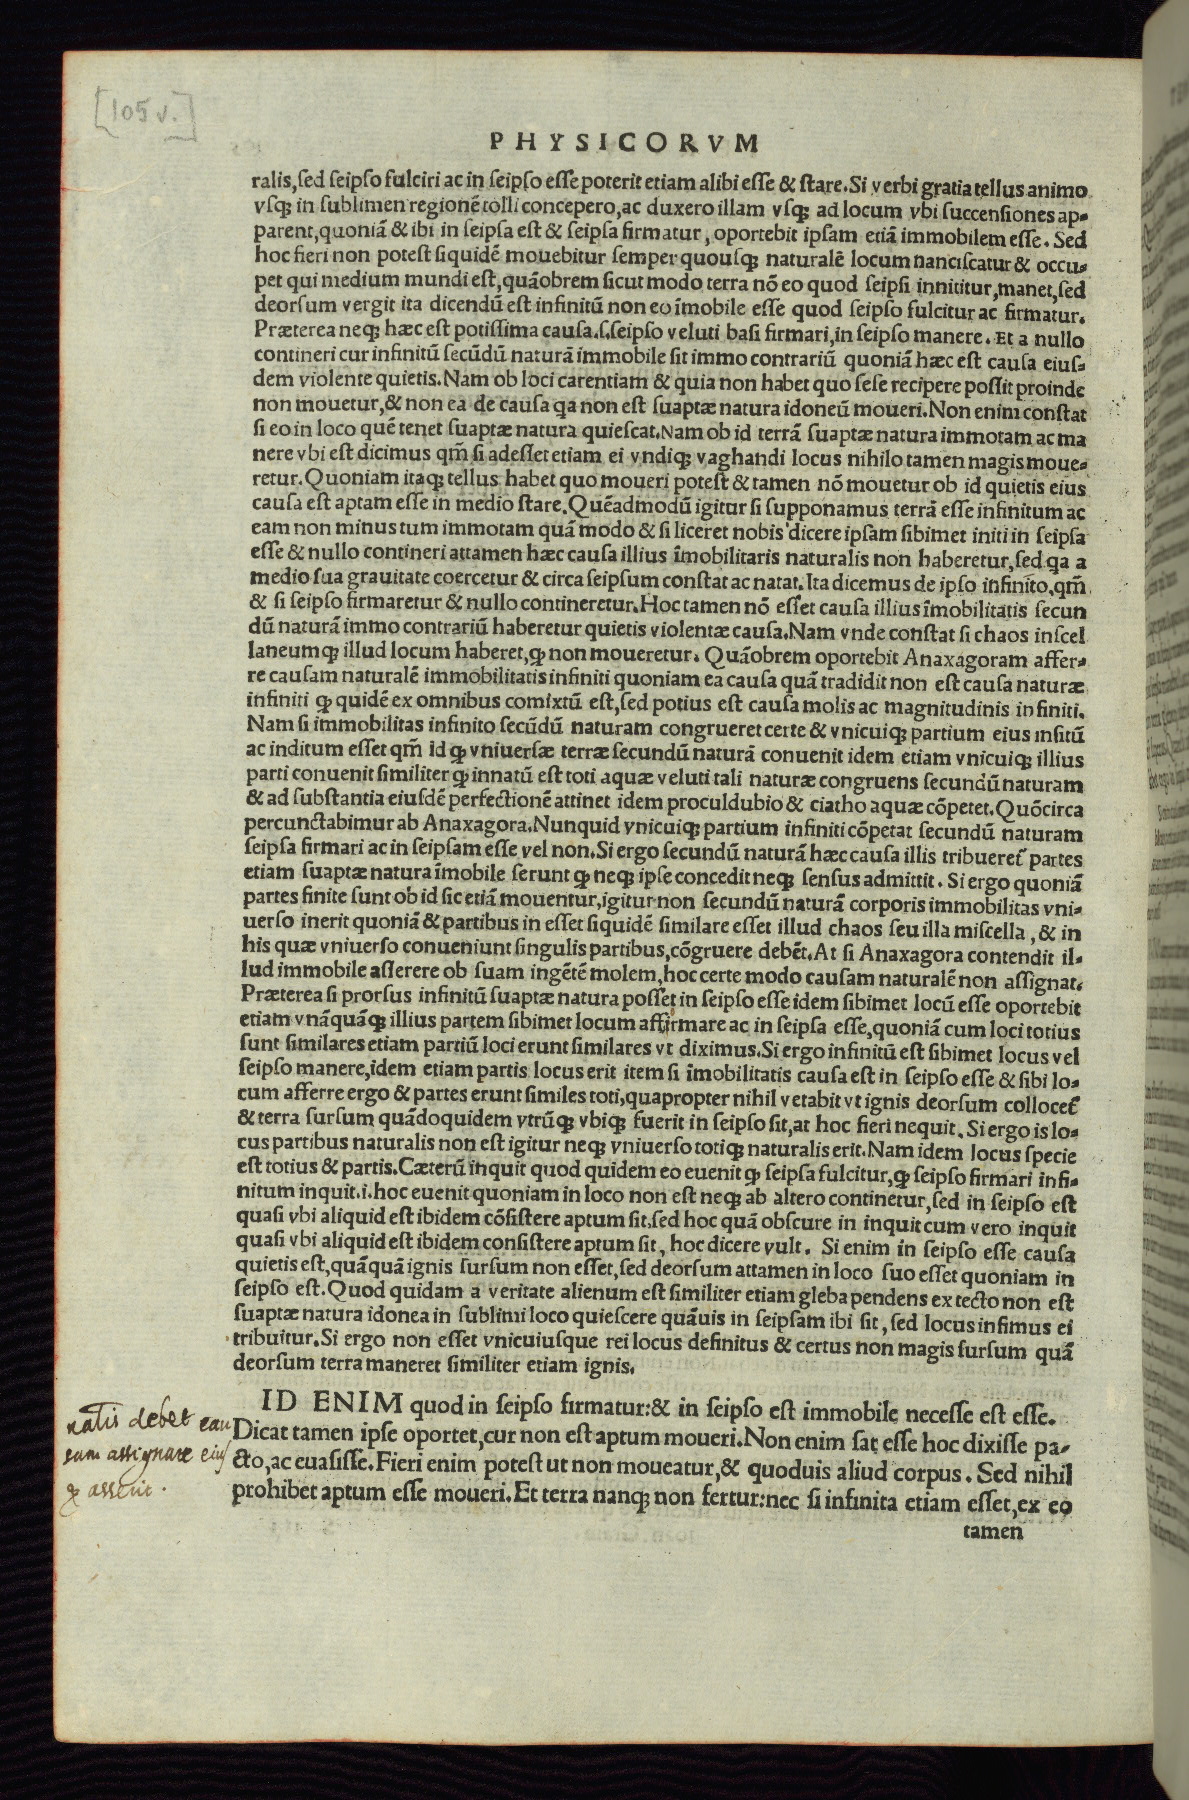 [105 v.]
PHYSICORVM
ralis,sed seipso fulciri ac in seipso esse poterit etiam alibi esse & stare.Si verbi gratia tellus animo
vsq; in sublimen regionē tolli concepero,ac duxero illam vsq; ad locum vbi succensiones ap-
parent,quoniā & ibi in seipsa est & seipsa firmatur, oportebit ipsam etiā immobilem esse. Sed
hoc fieri non potest siquidē mouebitur semper quousq; naturalē locum nanciscatur & occu-
pet qui medium mundi est,quāobrem sicut modo terra nō eo quod seipsi innititur,manet,sed
deorsum vergit ita dicendū est infinitū non eo īmobile esse quod seipso fulcitur ac firmatur.
Præterea neq; hæc est potissima causa.s.seipso veluti basi firmari,in seipso manere. Et a nullo
contineri cur infinitū secūdū naturā immobile sit immo contrariū quoniā hæc est causa eius-
dem violente quietis.Nam ob loci carentiam & quia non habet quo sese recipere possit proinde
non mouetur,& non ea de causa qa non est suaptæ natura idoneū moueri.Non enim constat
si eo in loco quē tenet suaptæ natura quiescat.Nam ob id terrā suaptæ natura immotam ac ma
nere vbi est dicimus qm̄ si adesset etiam ei vndiq; vaghandi locus nihilo tamen magis moue-
retur.Quoniam itaq; tellus habet quo moueri potest & tamen nō mouetur ob id quietis eius
causa est aptam esse in medio stare.Quēadmodū igitur si supponamus terrā esse infinitum ac
eam non minus tum immotam quā modo & si liceret nobis dicere ipsam sibimet initi in seipsa
esse & nullo contineri attamen hæc causa illius īmobilitaris naturalis non haberetur,sed qa a
medio sua grauitate coercetur & circa seipsum constat ac natat.Ita dicemus de ipso infinito,qm̄
& si seipso firmaretur & nullo contineretur.Hoc tamen nō esset causa illius īmobilitatis secun
dū naturā immo contrariū haberetur quietis violentæ causa.Nam vnde constat si chaos inscel
laneumq; illud locum haberet,ꝙ non moueretur. Quāobrem oportebit Anaxagoram affer-
re causam naturalē immobilitatis infiniti quoniam ea causa quā tradidit non est causa naturæ
infiniti ꝙ quidē ex omnibus comixtū est,sed potius est causa molis ac magnitudinis infiniti.
Nam si immobilitas infinito secūdū naturam congrueret certe & vnicuiq; partium eius insitū
ac inditum esset qm̄ id ꝙ vniuersæ terræ secundū naturā conuenit idem etiam vnicuiq; illius
parti conuenit similiter ꝙ innatū est toti aquæ veluti tali naturæ congruens secundū naturam
& ad substantia eiusdē perfectionē attinet idem proculdubio & ciatho aquæ cōpetet.Quōcirca
percunctabimur ab Anaxagora.Nunquid vnicuiq; partium infiniti cōpetat secundū naturam
seipsa firmari ac in seipsam esse vel non.Si ergo secundū naturā hæc causa illis tribueret̄ partes
etiam suaptæ natura īmobile serunt ꝙ neq; ipse concedit neq; sensus admittit. Si ergo quoniā
partes finite sunt ob id sic etiā mouentur,igitur non secundū naturā corporis immobilitas vni-
uerso inerit quoniā & partibus in esset siquidē similare esset illud chaos seu illa miscella, & in
his quæ vniuerso conueniunt singulis partibus,cōgruere debēt.At si Anaxagora contendit il-
lud immobile asserere ob suam ingētē molem,hoc certe modo causam naturalē non assignat.
Præterea si prorsus infinitū suaptæ natura posset in seipso esse idem sibimet locū esse oportebit
etiam vnāquāq; illius partem sibimet locum affirmare ac in seipsa esse,quoniā cum loci totius
sunt similares etiam partiū loci erunt similares vt diximus.Si ergo infinitū est sibimet locus vel
seipso manere,idem etiam partis locus erit item si īmobilitatis causa est in seipso esse & sibi lo-
cum afferre ergo & partes erunt similes toti,quapropter nihil vetabit vt ignis deorsum collocet̄
& terra sursum quādoquidem vtrūq; vbiq; fuerit in seipso sit,at hoc fieri nequit.Si ergo is lo-
cus partibus naturalis non est igitur neq; vniuerso totiq; naturalis erit.Nam idem locus specie
est totius & partis.Cæterū inquit quod quidem eo euenit ꝙ seipsa fulcitur,ꝙ seipso firmari infi-
nitum inquit.i.hoc euenit quoniam in loco non est neq; ab altero continetur,sed in seipso est
quasi vbi aliquid est ibidem cōsistere aptum sit.sed hoc quā obscure in inquit cum vero inquit
quasi vbi aliquid est ibidem consistere aptum sit, hoc dicere vult. Si enim in seipso esse causa
quietis est,quāquā ignis sursum non esset,sed deorsum attamen in loco suo esset quoniam in
seipso est.Quod quidam a veritate alienum est similiter etiam gleba pendens ex tecto non est
suaptæ natura idonea in sublimi loco quiescere quāuis in seipsam ibi sit,sed locus infimus ei
tribuitur.Si ergo non esset vnicuiusque rei locus definitus & certus non magis sursum quā
deorsum terra maneret similiter etiam ignis.
ID ENIM quod in seipso firmatur:& in seipso est immobile necesse est esse.
Dicat tamen ipse oportet,cur non est aptum moueri.Non enim sat esse hoc dixisse pa-
cto,ac euasisse.Fieri enim potest ut non moueatur,& quoduis aliud corpus. Sed nihil
prohibet aptum esse moueri.Et terra nanq; non fertur:nec si infinita etiam esset,ex eo
tamen
debet cau
sam assignare eius
ꝙ asserit.